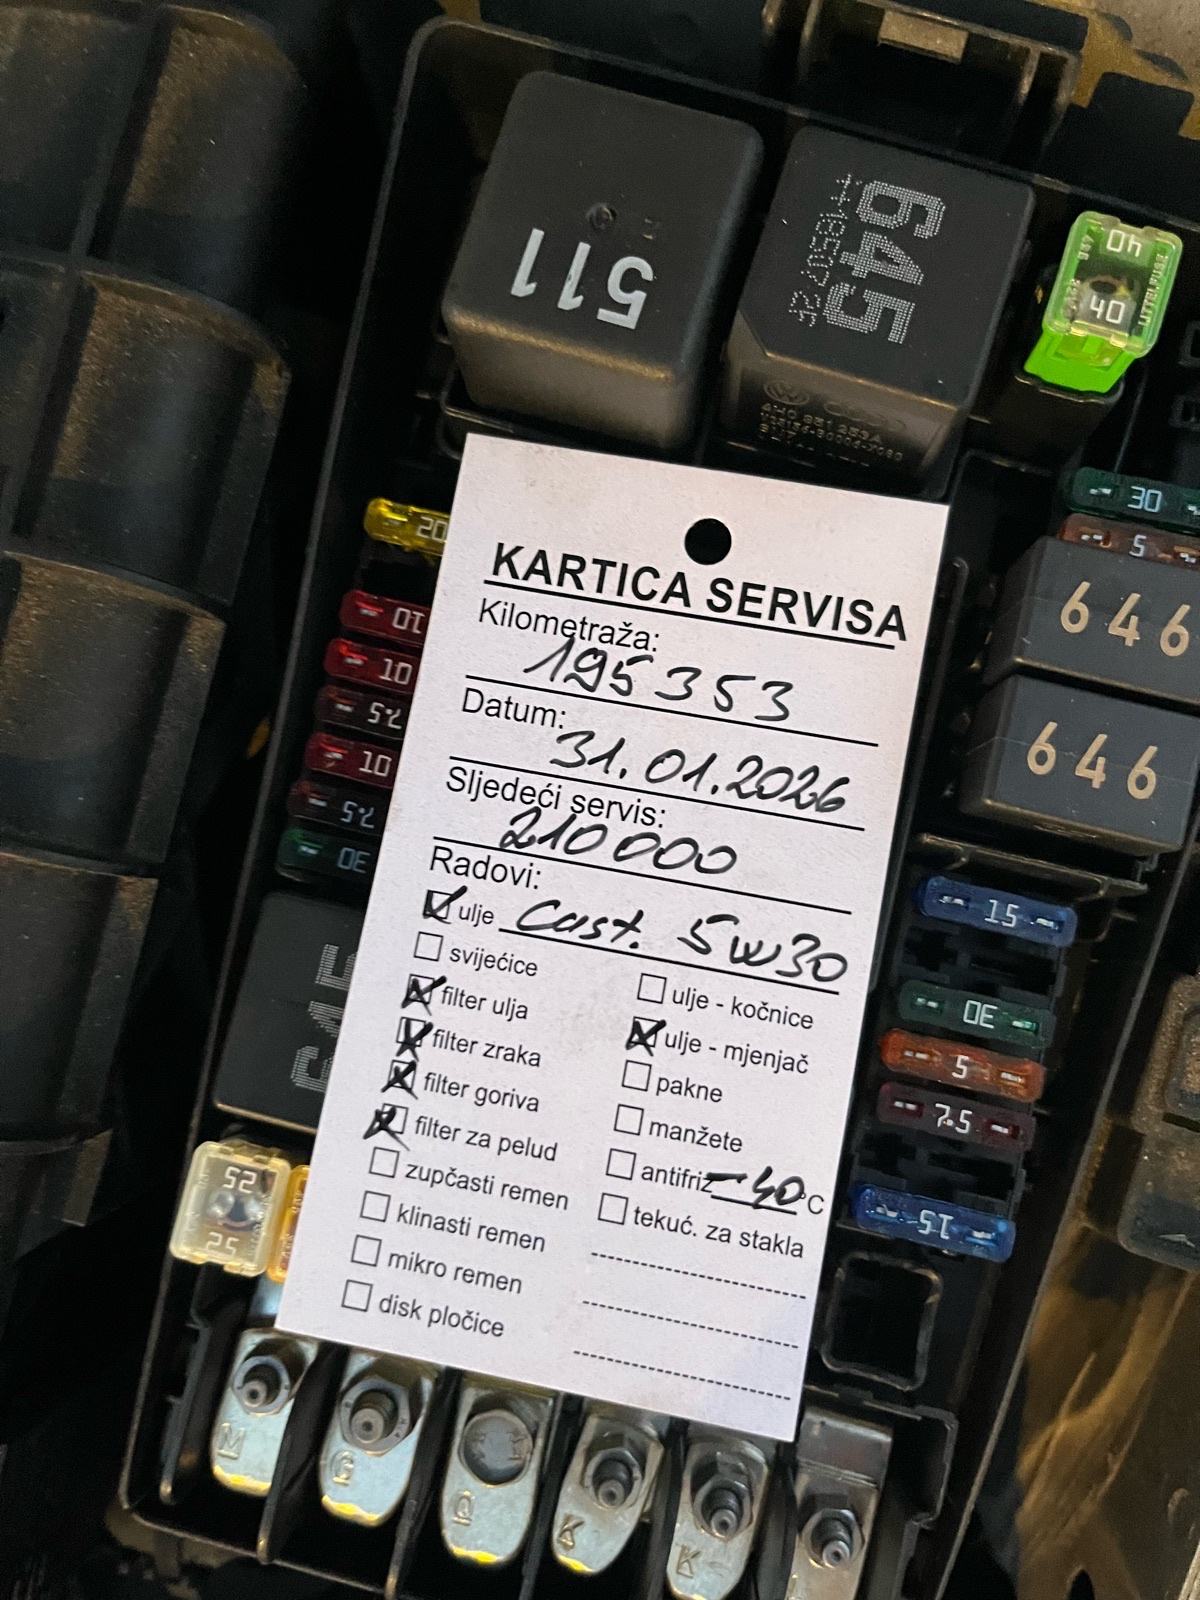 511
645
4H0 951 253A
40
40
LITTELFUSE
30
5
646
646
20
10
10
7.5
10
7.5
30
25
25
15
30
5
7.5
15
KARTICA SERVISA
Kilometraža:
195353
Datum:
31.01.2026
Sljedeći servis:
210000
Radovi:
ulje Cast. 5w30
svijećice
filter ulja
filter zraka
filter goriva
filter za pelud
zupčasti remen
klinasti remen
mikro remen
disk pločice
ulje - kočnice
ulje - mjenjač
pakne
manžete
antifriz -40°C
tekuć. za stakla
M
G
Q
K
K